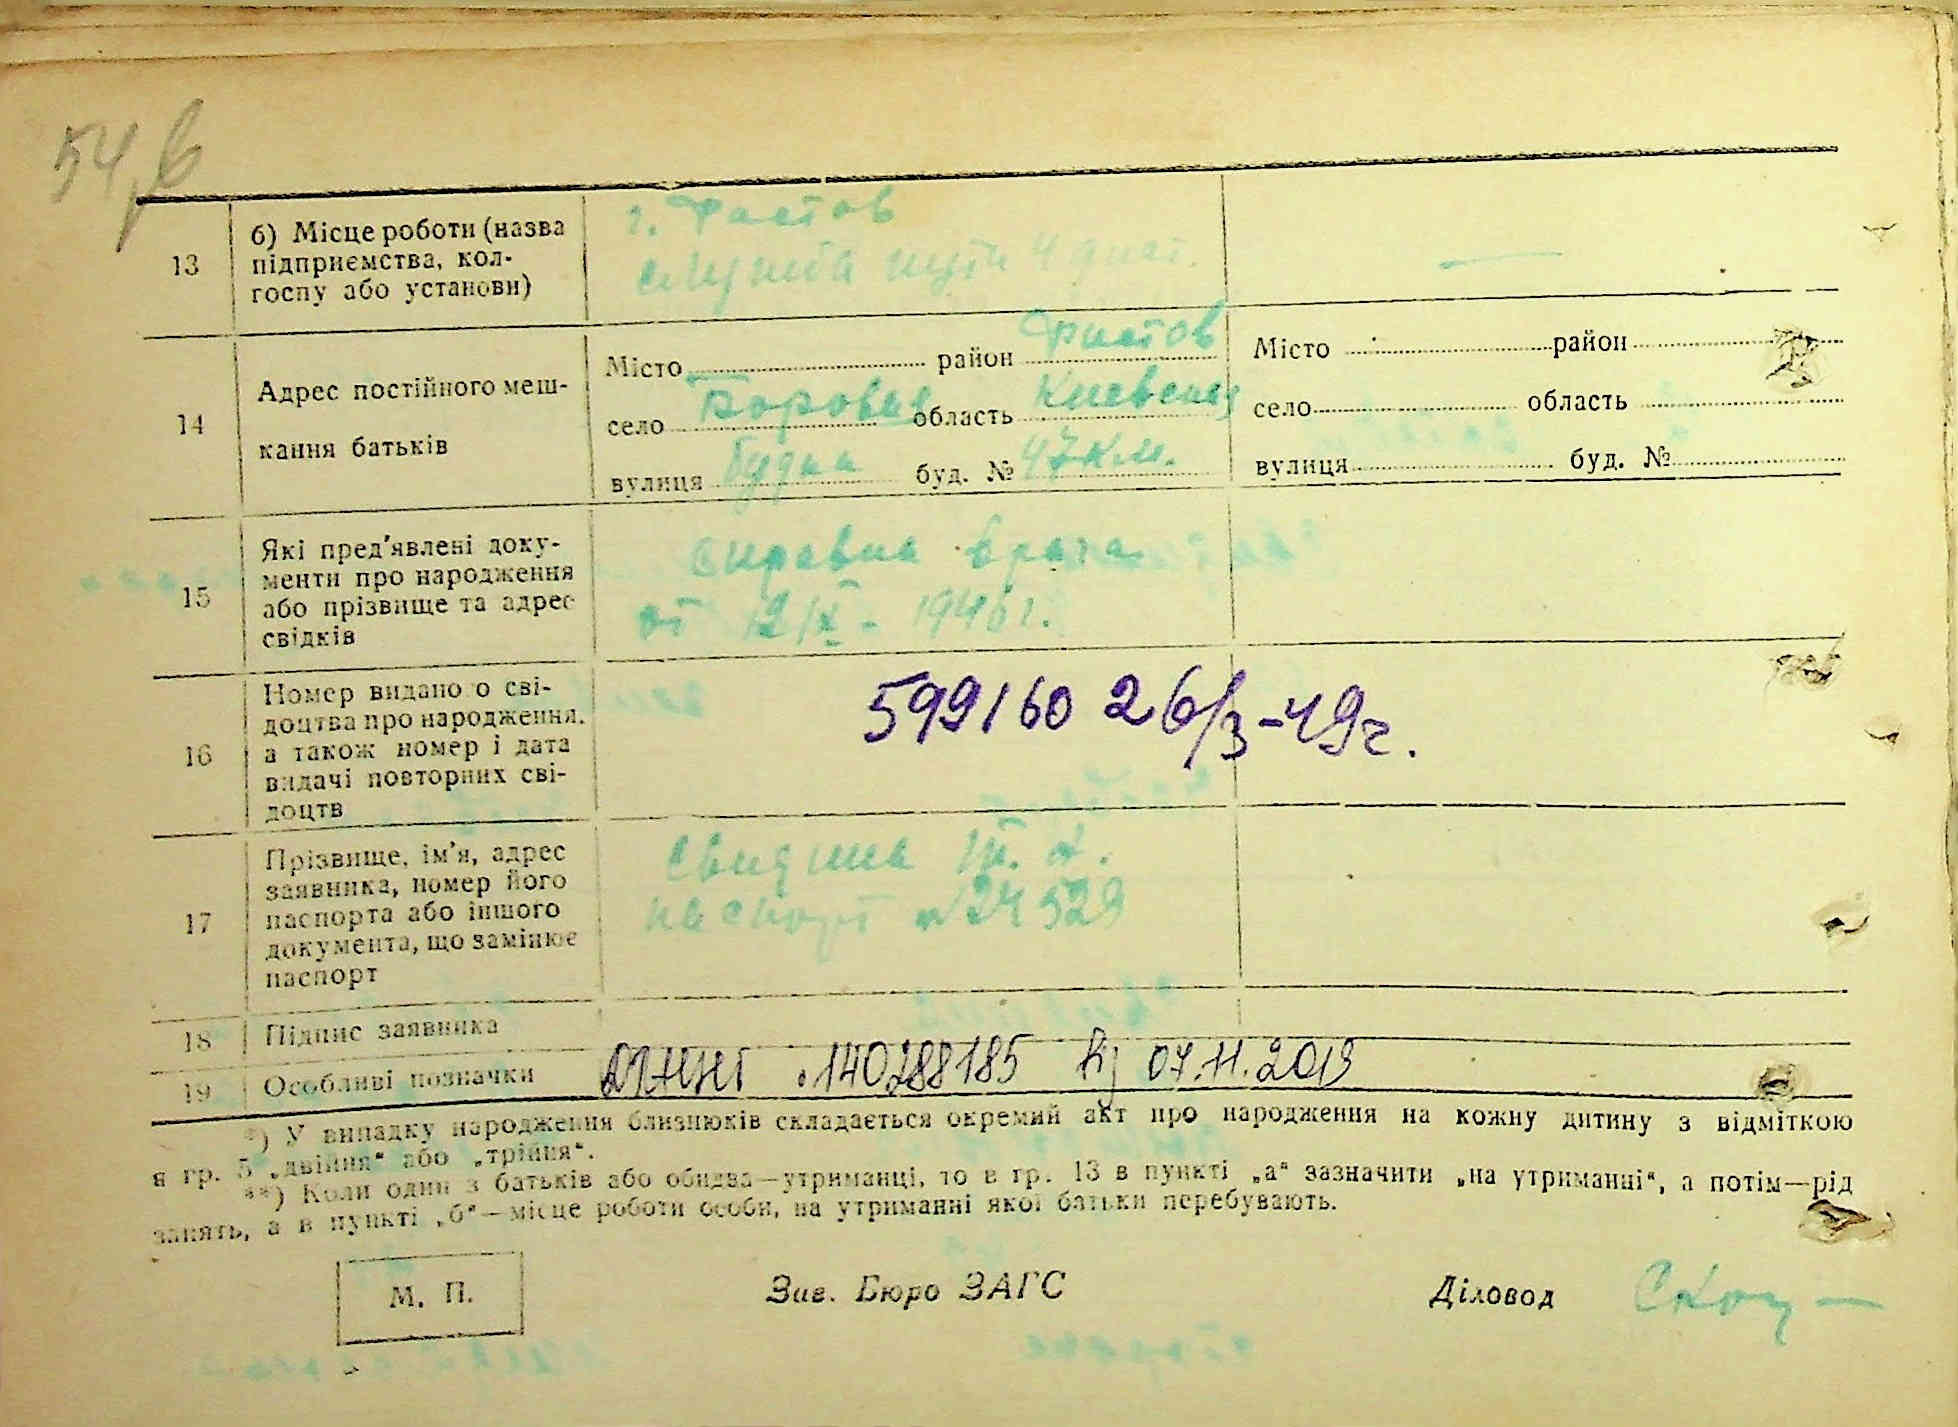 54
13
б) Місце роботи (назва
підприємства, кол-
госпу або установи)
г. Фастов
служба пути
14
Адрес постійного меш-
кання батьків
Місто район Фастов
село Боровая область Киевская
вулиця будка буд. № 47 км.
Місто район
село область
вулиця буд. №
15
Які пред'явлені доку-
менти про народження
або прізвище та адрес
свідків
справка врача
от 12/X - 1946 г.
16
Номер видано о сві-
доцтва про народження,
а також номер і дата
видачі повторних сві-
доцтв
599160 26/3-49г.
17
Прізвище, ім'я, адрес
заявника, номер його
паспорта або іншого
документа, що замінює
паспорт
паспорт № 24529
18
Підпис заявника
19
Особливі позначки
140288185 07.11.2019
*) У випадку народження близнюків складається окремий акт про народження на кожну дитину з відміткою
в гр. 5 „двійня“ або „трійня“.
**) Коли один з батьків або обидва—утриманці, то в гр. 13 в пункті „а“ зазначити „на утриманні“, а потім—рід
занять, а в пункті „б“—місце роботи особи, на утриманні якої батьки перебувають.
М. П.
Зав. Бюро ЗАГС
Діловод